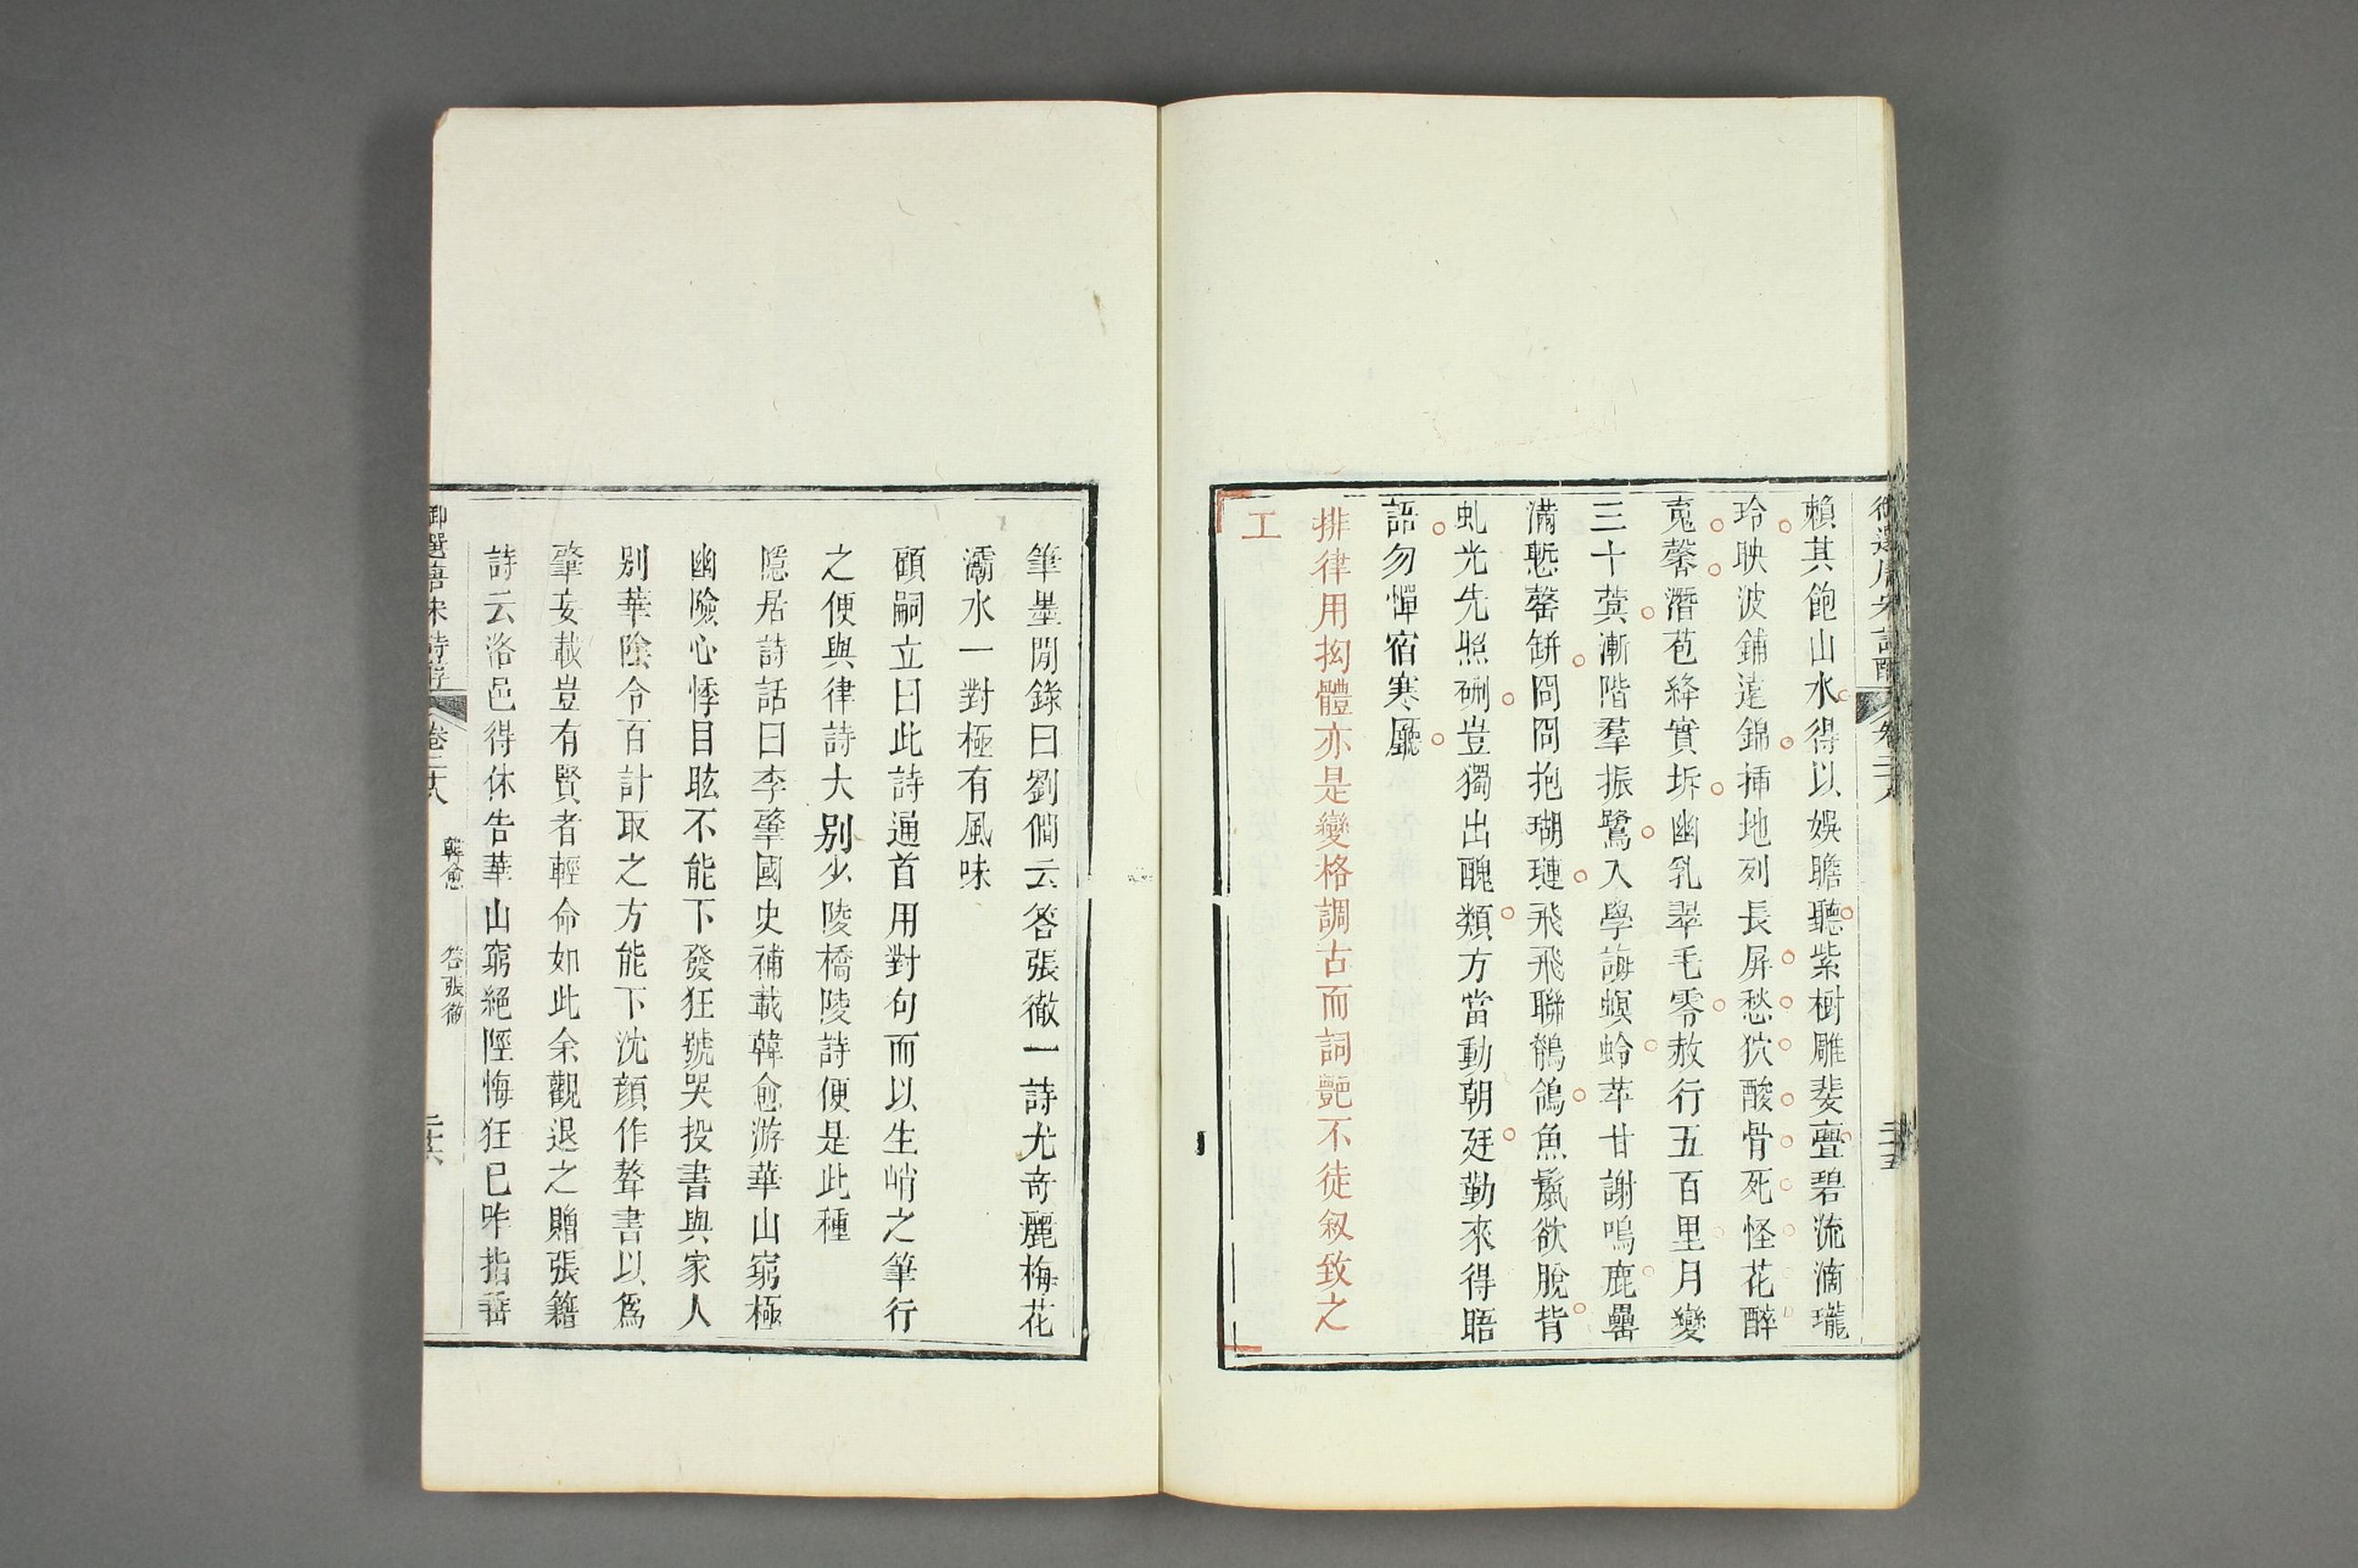 御選唐宋詩醇 卷二十八 二十五
賴其飽山水得以娛瞻聽紫樹雕斐亹碧流滴瓏
玲映波鋪遠錦揷地列長屏愁狖酸骨死怪花醉
䰟馨潛苞絳實坼幽乳翠毛零赦行五百里月變
三十蓂漸階羣振鷺入學誨螟蛉苹甘謝鳴鹿罍
滿慙罄缾冏冏抱瑚璉飛飛聯鶺鴒魚鬛欲脫背
虬光先照硎豈獨出醜類方當動朝廷勤來得晤
語勿憚宿寒廳
排律用拗體亦是變格調古而詞艶不徒叙致之
工
筆墨閒錄曰劉僴云答張徹一詩尤奇麗梅花
灞水一對極有風味
顧嗣立曰此詩通首用對句而以生峭之筆行
之便與律詩大别少陵橋陵詩便是此種
隱居詩話曰李肇國史補載韓愈游華山窮極
幽險心悸目眩不能下發狂號哭投書與家人
别華陰令百計取之方能下沈顔作聱書以爲
肇妄載豈有賢者輕命如此余觀退之贈張籍
詩云洛邑得休告華山窮絕陘悔狂已咋指垂
御選唐宋詩醇 卷二十八 韓愈 答張徹 二十六